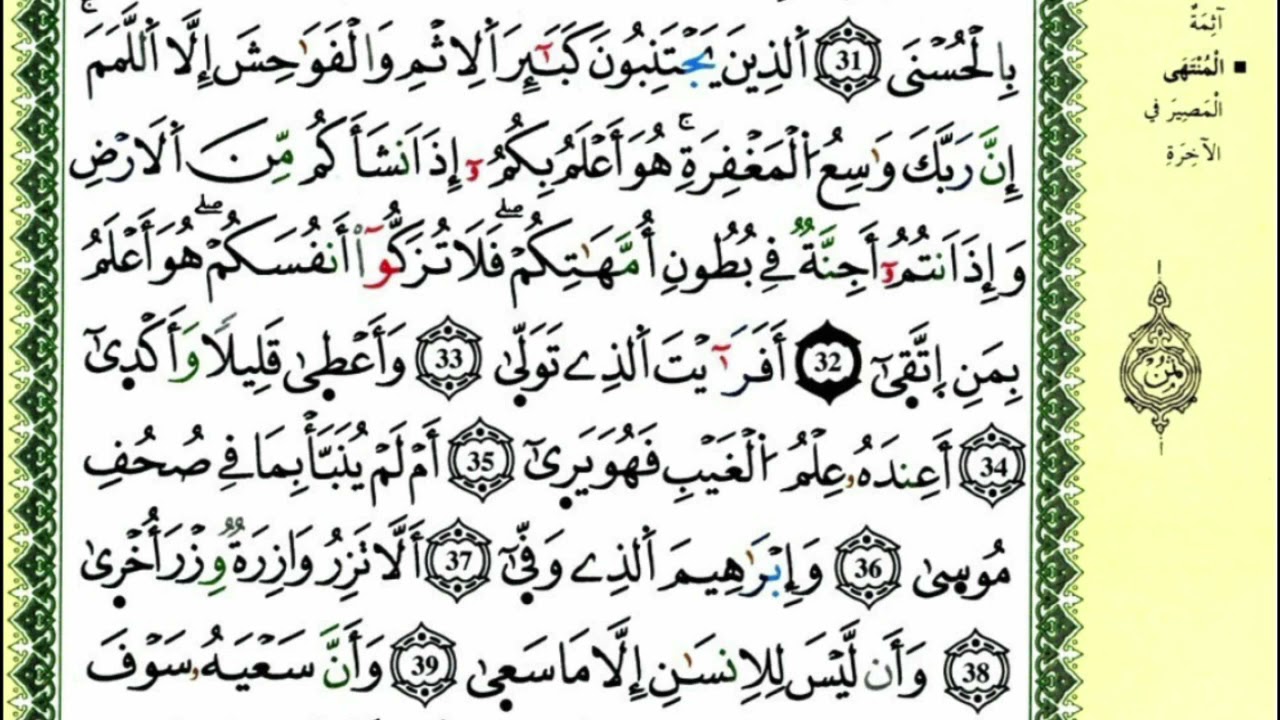 بِالْحُسْنَى 31 اَلذِينَ يَجْتَنِبُونَ كَبَٰٓئِرَ اَلِاثْمِ وَالْفَوَٰحِشَ إِلَّا اَللَّمَمَۚ
إِنَّ رَبَّكَ وَٰسِعُ اُلْمَغْفِرَةِۚ هُوَ أَعْلَمُ بِكُمُۥٓ إِذَ اَنشَأَكُم مِّنَ اَلَارْضِ
وَإِذَ اَنتُمُۥٓ أَجِنَّةٞ فِے بُطُونِ أُمَّهَٰتِكُمْۖ فَلَا تُزَكُّوٓاْ أَنفُسَكُمْۖ هُوَ أَعْلَمُ
بِمَنِ اِتَّقَىٰٓ 32 أَفَرَآيْتَ اَلذِے تَوَلَّىٰ 33 وَأَعْطَىٰ قَلِيلٗا وَأَكْدَىٰٓ
34 أَعِندَهُۥ عِلْمُ اُلْغَيْبِ فَهُوَ يَرَىٰٓ 35 أَمْ لَمْ يُنَبَّأْ بِمَا فِے صُحُفِ
مُوسَىٰ 36 وَإِبْرَٰهِيمَ اَلذِے وَفَّىٰٓ 37 أَلَّا تَزِرُ وَازِرَةٞ وِزْرَ أُخْرَىٰ
38 وَأَن لَّيْسَ لِلِانسَٰنِ إِلَّا مَا سَعَىٰ 39 وَأَنَّ سَعْيَهُۥ سَوْفَ
آثِمَةٌ
■ الْمُنْتَهَى
الْمَصِيرَ فِي
الآخِرَةِ
ثُمُنْ